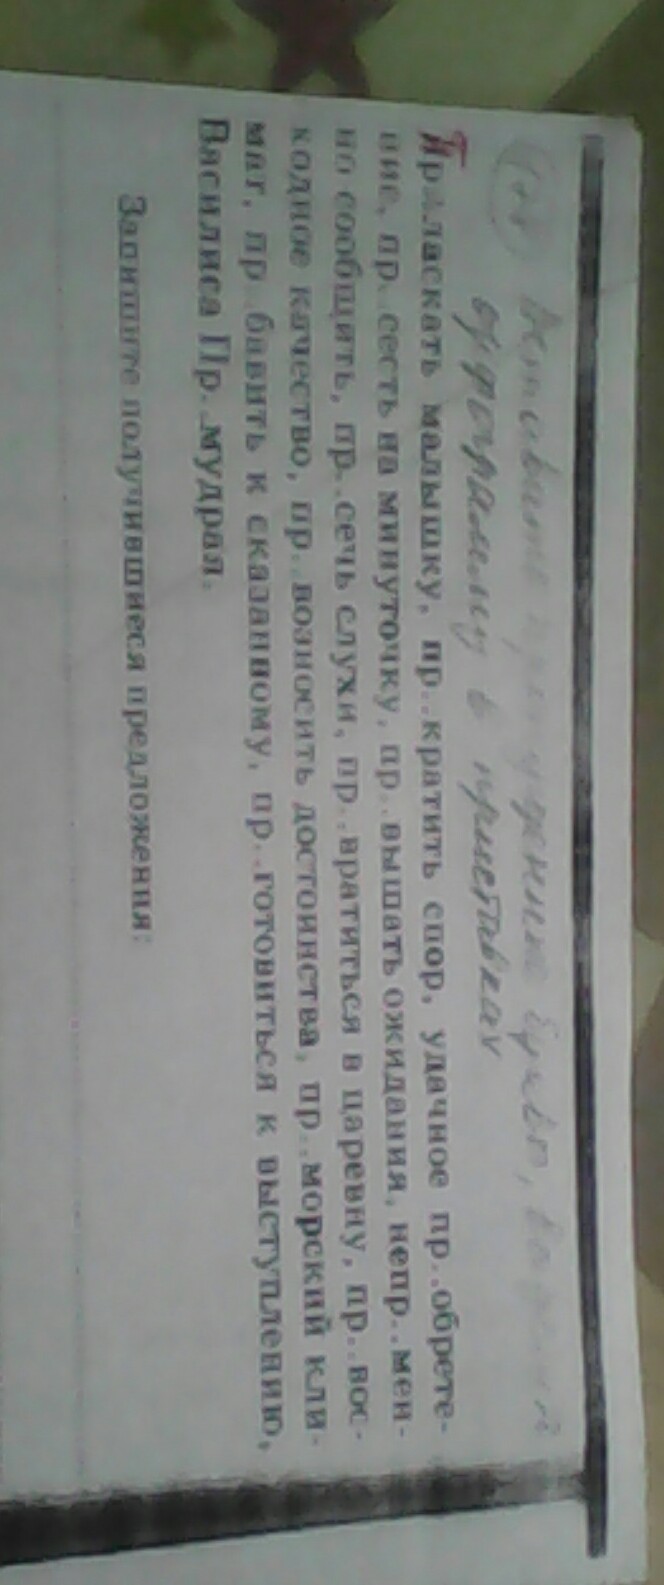 Вставьте пропущенные буквы,
орфограмму в приставках
Пр..ласкать малышку, пр..кратить спор, удачное пр..обрете-
ние, пр..сесть на минуточку, пр..вышать ожидания, непр..мен-
но сообщить, пр..сечь слухи, пр..вратиться в царевну, пр..вос-
ходное качество, пр..возносить достоинства, пр..морский кли-
мат, пр..бавить к сказанному, пр..готовиться к выступлению,
Василиса Пр..мудрая.
Запишите получившиеся предложения: